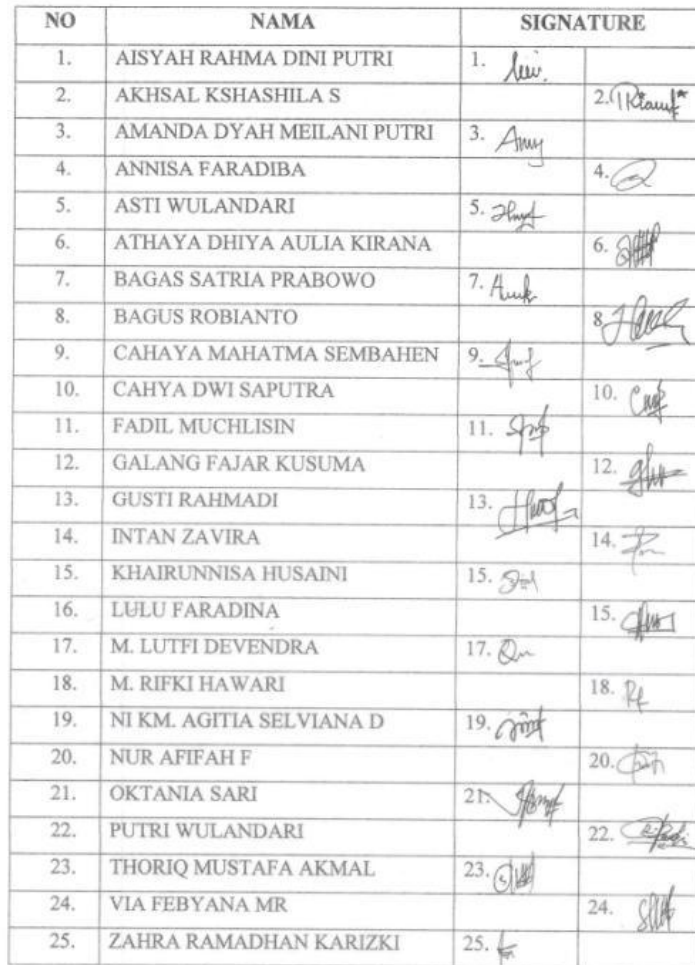 NO NAMA SIGNATURE
1. AISYAH RAHMA DINI PUTRI 1.
2. AKHSAL KSHASHILA S 2.
3. AMANDA DYAH MEILANI PUTRI 3. Amy
4. ANNISA FARADIBA 4.
5. ASTI WULANDARI 5.
6. ATHAYA DHIYA AULIA KIRANA 6.
7. BAGAS SATRIA PRABOWO 7.
8. BAGUS ROBIANTO 8
9. CAHAYA MAHATMA SEMBAHEN 9.
10. CAHYA DWI SAPUTRA 10.
11. FADIL MUCHLISIN 11.
12. GALANG FAJAR KUSUMA 12.
13. GUSTI RAHMADI 13.
14. INTAN ZAVIRA 14.
15. KHAIRUNNISA HUSAINI 15.
16. LULU FARADINA 15.
17. M. LUTFI DEVENDRA 17.
18. M. RIFKI HAWARI 18.
19. NI KM. AGITIA SELVIANA D 19.
20. NUR AFIFAH F 20.
21. OKTANIA SARI 21.
22. PUTRI WULANDARI 22.
23. THORIQ MUSTAFA AKMAL 23.
24. VIA FEBYANA MR 24.
25. ZAHRA RAMADHAN KARIZKI 25.